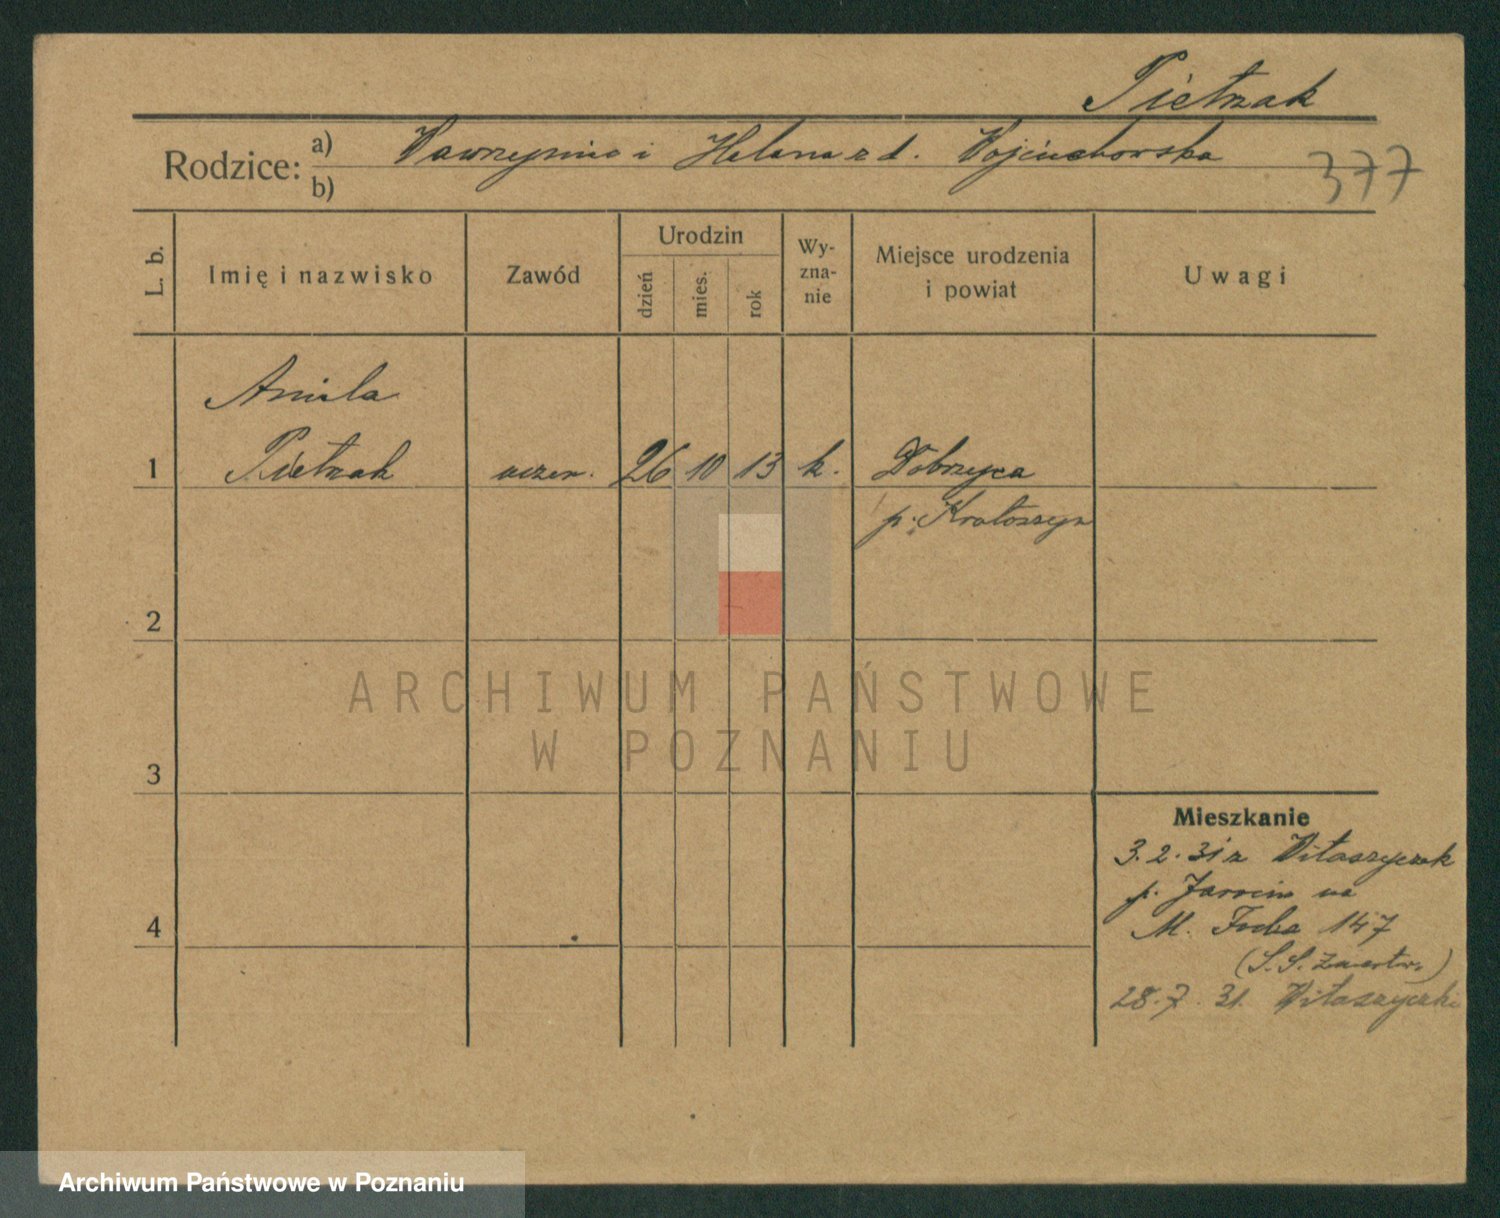 Pietrzak
Rodzice: a) Wawrzyniec i Helena z d. Wojciechowska
b)
377
L. b.
Imię i nazwisko
Zawód
Urodzin
dzień
mies.
rok
Wy-
zna-
nie
Miejsce urodzenia
i powiat
Uwagi
Aniela
1 Pietrzak uczen. 26 10 13 k. Dobrzyca
p. Krotoszyn
2
ARCHIWUM PAŃSTWOWE
W POZNANIU
3
Mieszkanie
3. 2. 31 z Witaszyczek
p. Jarocin na
4
M. Focha 147
(S. S.
28. 7. 31. Witaszyczki
Archiwum Państwowe w Poznaniu